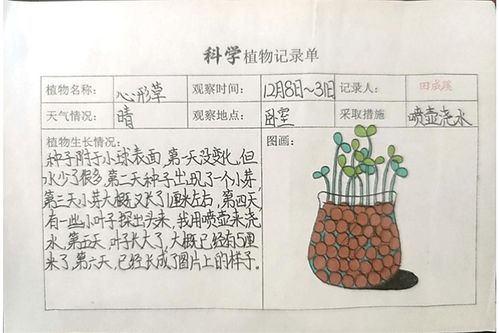 科学植物记录单
植物名称: 心形草 观察时间: 12月8日~31日 记录人: 田成蹊
天气情况: 晴 观察地点: 卧室 采取措施 喷壶浇水
植物生长情况:
种子附于小球表面,第一天没变化,但
水少了很多,第二天种子出现了一个小芽,
第三天小芽大概又长了1厘米左右,第四天
有一些小叶子探出头来,我用喷壶来浇
水,第五天,叶子长大了,大概已经有5厘
米了,第六天,已经长成了图片上的样子。
图画: